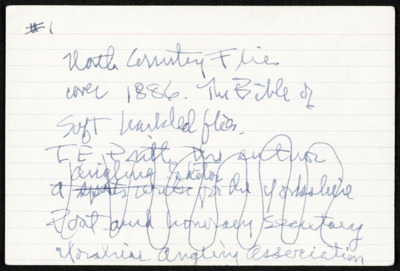 #1
North Country Flies
cover 1886. The Bible of
Soft hackled flies.
T.E. Pritt, the author
angling editor
a sports writer for the Yorkshire
Post and honorary secretary
Yorkshire Angling Association